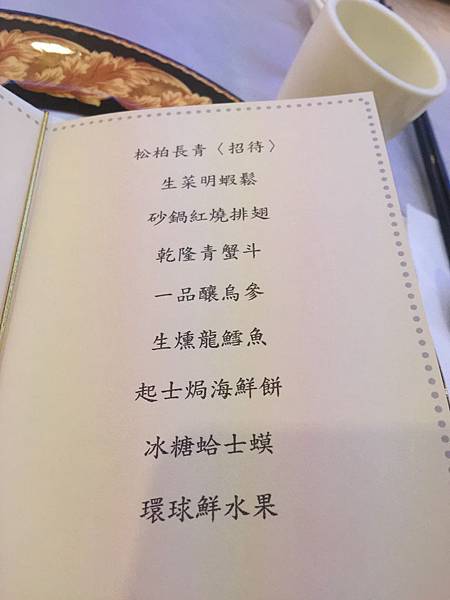 松柏長青〈招待〉
生菜明蝦鬆
砂鍋紅燒排翅
乾隆青蟹斗
一品釀烏參
生燻龍鱈魚
起士焗海鮮餅
冰糖蛤士蟆
環球鮮水果